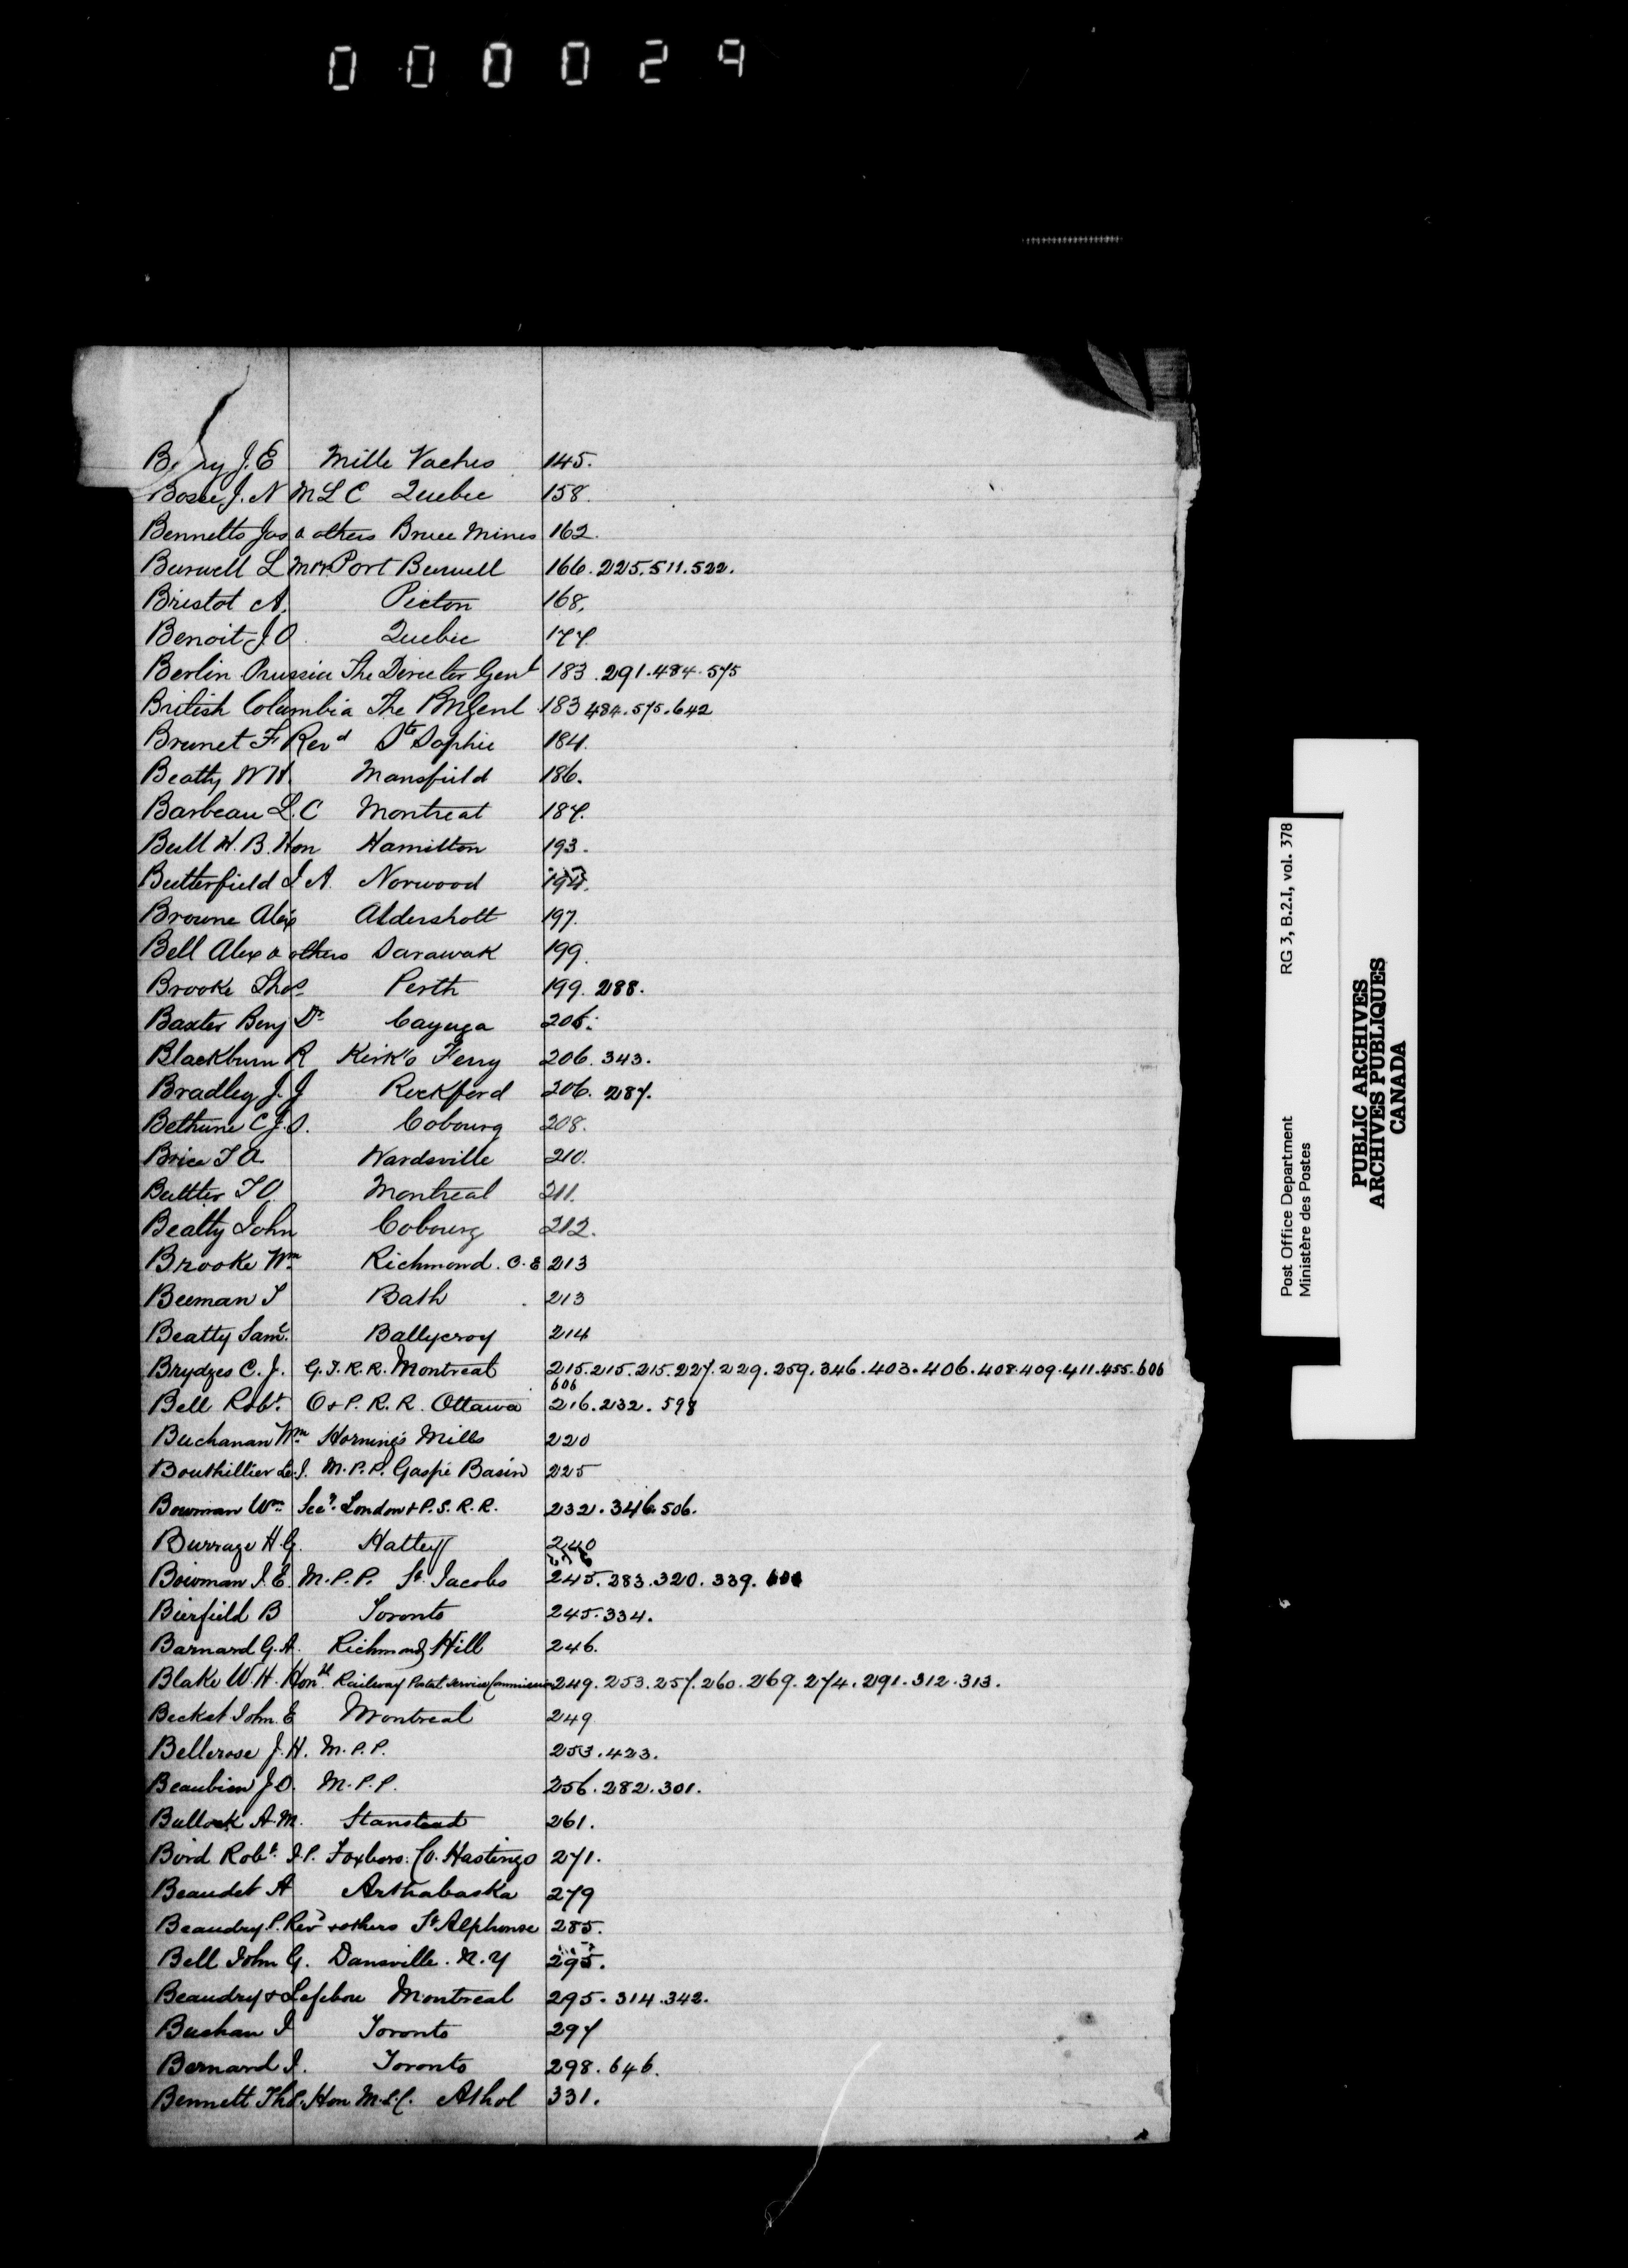 000029
J. E Mille Vaches 145.
Bosse J. N M L C Quebec 158.
Bennetts Jas & others Bruce Mines 162.
Burwell L Port Burwell 166. 225. 511. 522.
Bristol A. Picton 168.
Benoit J. O. Quebec 177.
Berlin Prussia The Director Genl 183. 291. 484. 575
British Columbia The PMGenl 183 484. 575. 642
Brunet F Revd Ste Sophie 184.
Beatty W H. Mansfield 186.
Barbeau L. C Montreal 187.
Bull H. B. Hon Hamilton 193.
Butterfield I A. Norwood 194.
Browne Alex Aldershott 197.
Bell Alex & others Sarawak 199.
Brooke Thos Perth 199. 288.
Baxter Benj Dr Cayuga 206.
Blackburn R Kirk's Ferry 206. 343.
Bradley J. J Rockford 206. 287.
Bethune C J. S. Cobourg 208.
Brice T A Wardsville 210.
Buttler T O. Montreal 211.
Beatty John Cobourg 212.
Brooke Wm Richmond. C. E 213
Beeman T Bath 213
Beatty Saml. Ballycroy 214
Brydges C. J. G. T. R. R. Montreal 215. 215. 215. 227. 229. 259. 346. 403. 406. 408. 409. 411. 455. 606
606
Bell Robt. O & P. R. R. Ottawa 216. 232. 598
Buchanan Wm Horning's Mills 220
Bouthillier Le. J. M. P. P. Gaspé Basin 225
Bowman Wm Secy. London & P. S. R. R. 232. 346. 506.
Burrage H. G. Hatley 240
Bowman I. E. M. P. P. St. Jacobs 245. 283. 320. 339.
Bierfield B Toronto 245. 334.
Barnard G. A. Richmond Hill 246.
Blake W. H. Honbl Railway Postal Service Commission 249. 253. 257. 260. 269. 274. 291. 312. 313.
Becket John. E Montreal 249
Bellerose J. H. M. P. P. 253. 423.
Beaubien J. O. M. P. P. 256. 282. 301.
Bullock A. M. Stanstead 261.
Bird Robt. J. P. Foxboro. Co. Hastings 271.
Beaudet A Arthabaska 279
Beaudry P. Revd & others St Alphonse 285.
Bell John G. Dansville. N. Y 295.
Beaudry & Lefebvre Montreal 295. 314. 342.
Buchan I Toronto 297
Bernard I. Toronto 298. 646.
Bennett Thos. Hon M. L. C. Athol 331.
Post Office Department RG 3, B.2.I, vol. 378
Ministère des Postes
PUBLIC ARCHIVES
ARCHIVES PUBLIQUES
CANADA